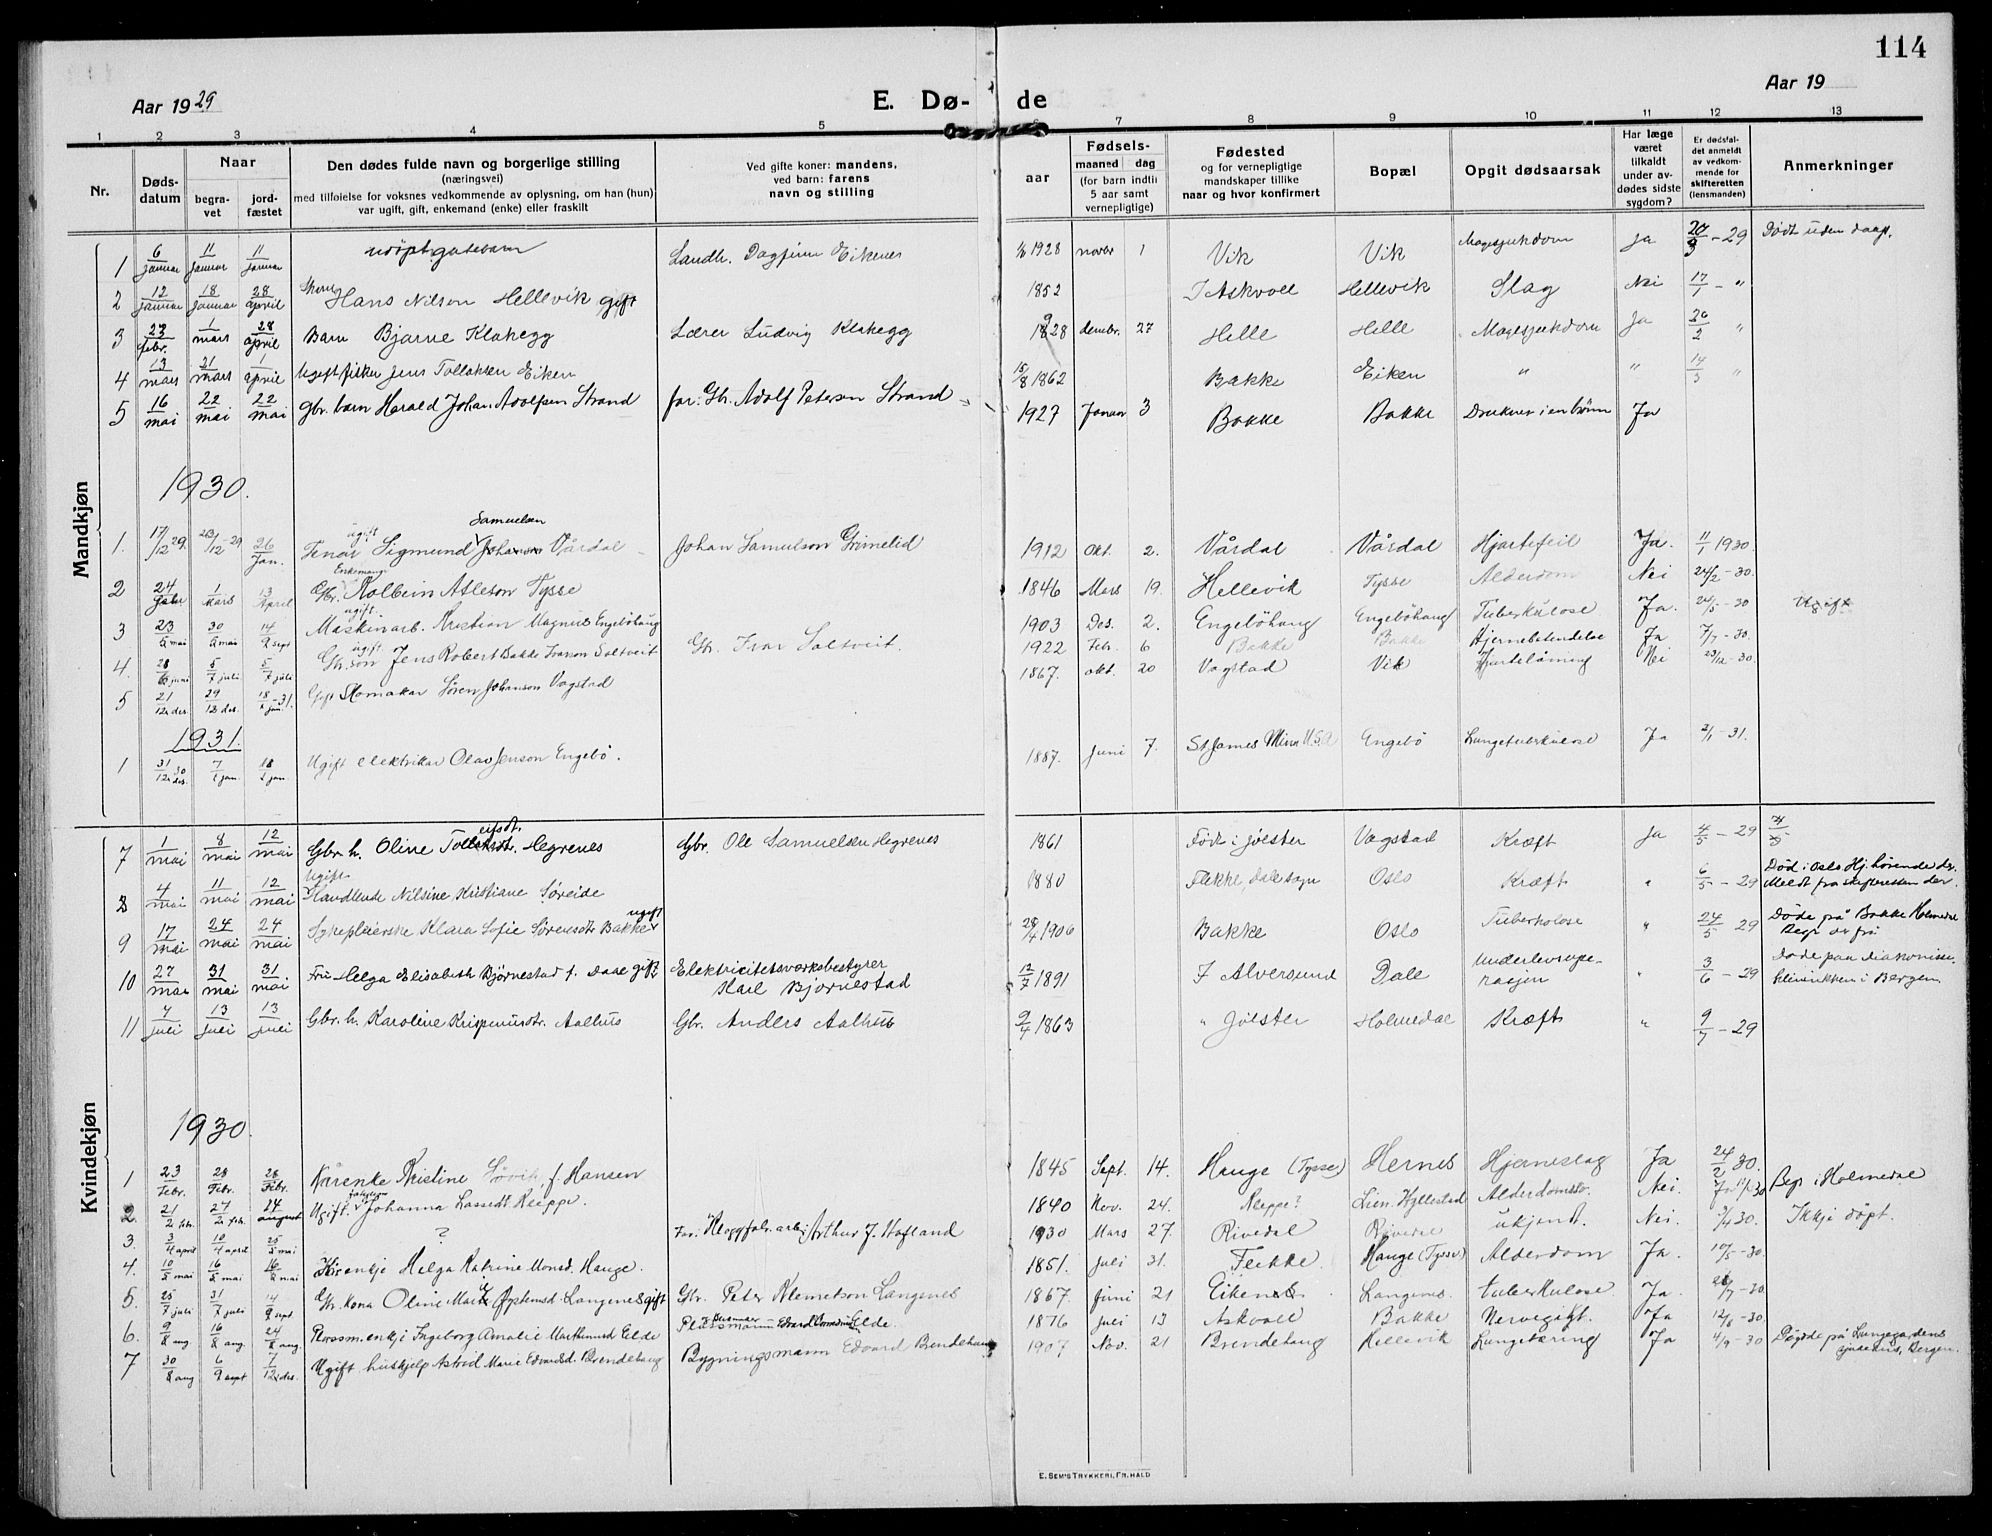 114
Aar 1929
E. Dø-de
Aar 19
1 2 3 4 5 7 8 9 10 11 12 13
Nr.
Døds-datum
Naar
begra-vet
jord-fæstet
Den dødes fulde navn og borgerlige stilling
(næringsvei)
med tilføielse for voksnes vedkommende av oplysning, om han (hun)
var ugift, gift, enkemand (enke) eller fraskilt
Ved gifte koner: mandens,
ved barn: farens
navn og stilling
aar
Fødsels-
maaned dag
(for barn indtil
5 aar samt
vernepligtige)
Fødested
og for vernepligtige
mandskaper tillike
naar og hvor konfirmert
Bopæl
Opgit dødsaarsak
Har læge
været
tilkaldt
under av-
dødes sidste
sygdom?
Er dødsfal-
det anmeldt
av vedkom-
mende for
skifteretten
(lensmanden)
Anmerkninger
Mandkjøn
1 6/januar 11/januar 11/januar udøpt guttebarn Landh. Dagfinn Eikenes 1928 novbr 1 Vik Vik Magesjukdom Ja 20/3 - 29 Dødt uden daap.
2 12/januar 18/januar 28/april Hans Nilsen Hellevik gift 1852 I Askvoll Hellevik Slag Nei 17/1 - "
3 23/febr. 1/mars 28/april Barn Bjarne Klakegg Lærer Ludvig Klakegg 1928 dembr. 27 Helle Helle Magesjukdom Ja 26/2 "
4 13/mars 21/mars 1/april Ugift fisker Jens Tollaksen Eiken 15/8 1862 Bakke Eiken " " 14/3 "
5 16/mai 22/mai 22/mai Gbr. barn Harald Johan Adolfsen Strand far: Gbr. Adolf Petersen Strand 1927 Januar 3 Bakke Bakke Druknet i en brønn Ja
1930.
1. 17/12 29. 23/12 - 29 26/Jan. ugift Tenar Sigmund Samuelsen Johanson Vårdal Johan Samulson Grimelid 1912 Okt. 2. Vårdal Vårdal Hjartefeil Ja. 11/1 1930.
2 24/Febr 1/Mars 13/April Enkemann Gbr. Kolbein Atleson Tysse 1846 Mars 19. Hellevik Tysse Alderdom Nei 24/2 - 30.
3 23/5 mai 30/5 mai 14/9 sept ugift. Maskinarb. Kristian Magnus Engebøhaug 1903 Des. 2. Engebøhaug Engebøhaug Tuberkulose Ja. 24/5 - 30 Ugift
4. 28/6 juni 5/7 juli 5/7 juli ugift Gbr. son Jens Robert Bakke Ivarson Saltveit Gbr. Ivar Saltveit. 1922 Feb. 6 Bakke Bakke Hjernebetendelse Ja 7/7 - 30.
5 21/12 des. 29/12 des. 18/1 jan. - 31. Gift Skomakar Søren Johanson Vagstad 1867. okt. 20 Vagstad Vik Hjartelåming Nei 23/12 - 30.
1931.
1 31/12 des. 30 7/1 jan. 18/1 jan Ugift elektrikar Olav Jenson Engebø. 1887. Juni 7. St James Minn U.S.A Engebø Lungetuberkulose Ja 2/1 - 31.
Kvindekjøn
7 1/mai 8/mai 12/mai Gbr. h. Oline Tollefsdt. Hegrenes Gbr. Ole Samuelsen Hegrenes 1861 Født i Jølster Vagstad Kræft Ja 4/5 - 29
8 4/mai 11/mai 12/mai Ugift Handlende Nilsine Kristiane Søreide 1880 Flekke, Dale sogn Oslo Kræft " 6/5 - 29 Død i Oslo Hj. hørende der. Meldt fra skifteretten der.
9 17/mai 24/mai 24/mai Sykepleierske Klara Sofie Sørensdt. Bakke ugift 28/4 1906 Bakke Oslo Tuberkolose " 24/5 29 Døde på Bakke Holmedal
10 27/mai 31/mai 31/mai Fru Helga Elisabeth Bjørnestad f. Daae gift Elektricitetsverksbestyrer Karl Bjørnestad 12/7 1891 I Alversund Dale Underlivsope-rasjon " 3/6 - 29 Døde paa diakonisse-klinikken i Bergen
11 4/juli 13/juli 13/juli Gbr. h. Karoline Krispinusdtr. Aalhus Gbr. Anders Aalhus 9/4 1863 " Jølster Holmedal Kræft " 9/7 - 29
1930.
1 23/Febr. 28/Febr. 28/Febr. Kårenke Kristine Løvik f. Hansen 1845 Sept. 14. Hauge (Tysse) Hernes Hjerneslag Ja 24/2 30.
2. 21/2 feb. 27/2 feb. 24/august Ugift. Johanna Lassedt. Kleppe. 1840 Nov. 24. Kleppe? Lien. Hyllestad Alderdomssv. Nei. Begr. i Holmedal
3. 3/4 april 10/4 april 25/5 mai ? Far: Kleggfabr. arb. Arthur J. Hofland 1930 Mars 27. Rivedal Rivedal ukjend. Nei. 5/4 30. Ikkje døpt.
4. 10/5 mai 16/5 mai 16/5 mai Kårenkje Helga Katrine Monsd. Hauge. 1851. juli 31. Flekke. Hauge (Tysse) Alderdom Ja. 10/5 - 30.
5. 25/7 juli 31/7 juli 14/9 sept Gbr. kona Oline Marie Øystensd. Langenes gift Gbr. Peter Klemetson Langenes 1867. Juni 21 Eikenes Langenes. Tuberkulose. Ja. 28/7 - 30.
6. 9/8 aug. 16/8 aug. 24/8 aug. Plassm. enkje Ingeborg Amalie Martinusd Eide Plassmann Eide. 1876 juli 13 Askvoll Bakke Nervegigt. Ja 12/8 - 30.
7 30/8 aug 6/9 sept 7/12 des. Ugift huskjelp Astrid Marie Edvardsd. Brendehaug Bygningsmann Edvard Brendehaug 1907 Nov. 21 Brendehaug Hellevik Lungetæring Ja 4/9 - 30 Døyde på Lungegardens sjukehus, Bergen.
E. SEM'S TRYKKERI, FR. HALD